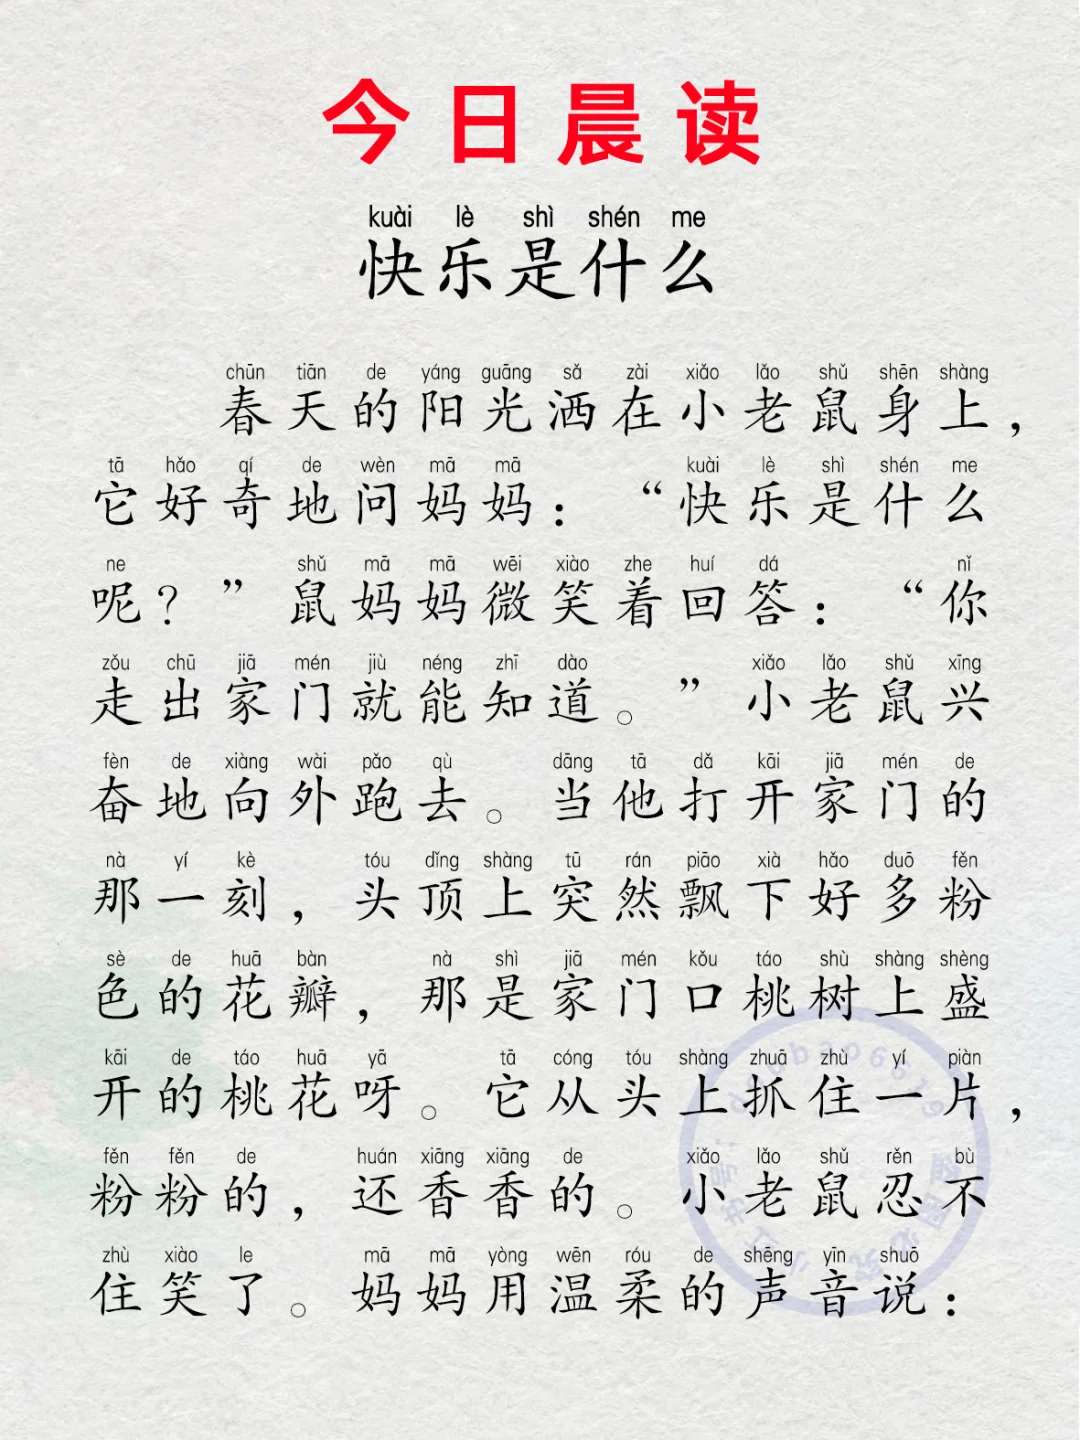 今日晨读
kuài lè shì shén me
快乐是什么
chūn tiān de yáng guāng sǎ zài xiǎo lǎo shǔ shēn shàng
春天的阳光洒在小老鼠身上，
tā hǎo qí de wèn mā mā kuài lè shì shén me
它好奇地问妈妈：“快乐是什么
ne shǔ mā mā wēi xiào zhe huí dá nǐ
呢？”鼠妈妈微笑着回答：“你
zǒu chū jiā mén jiù néng zhī dào xiǎo lǎo shǔ xīng
走出家门就能知道。”小老鼠兴
fèn de xiàng wài pǎo qù dāng tā dǎ kāi jiā mén de
奋地向外跑去。当他打开家门的
nà yí kè tóu dǐng shàng tū rán piāo xià hǎo duō fěn
那一刻，头顶上突然飘下好多粉
sè de huā bàn nà shì jiā mén kǒu táo shù shàng shèng
色的花瓣，那是家门口桃树上盛
kāi de táo huā yā tā cóng tóu shàng zhuā zhù yí piàn
开的桃花呀。它从头上抓住一片，
fěn fěn de huán xiāng xiāng de xiǎo lǎo shǔ rěn bù
粉粉的，还香香的。小老鼠忍不
zhù xiào le mā mā yòng wēn róu de shēng yīn shuō
住笑了。妈妈用温柔的声音说：